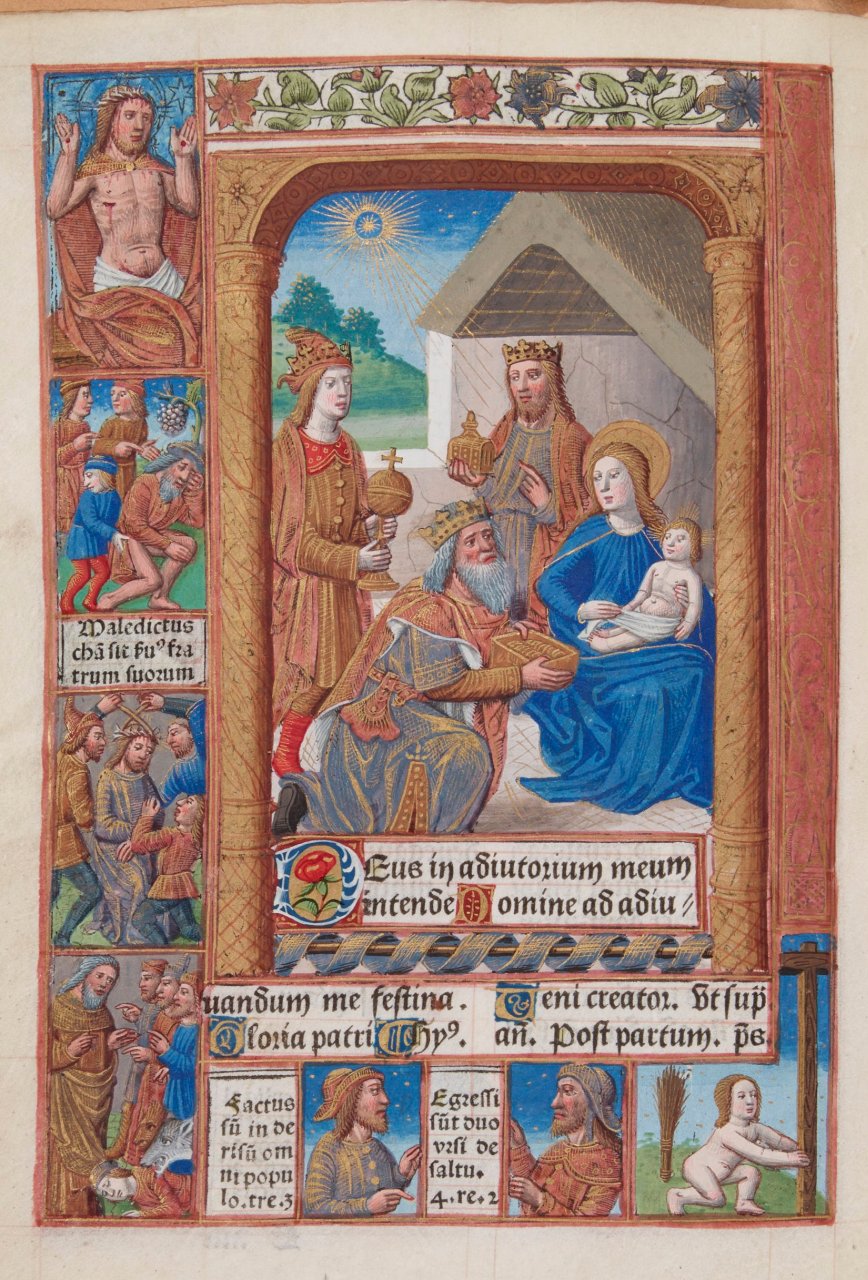 Maledictus
chā sit ẜuꝰ fra
trum suorum
Deus in adiutorium meum
intende Domine ad adiu//
uandum me festina.
Gloria patri Ihyꝰ.
Veni creator. Vt sup̄
añ. Post partum. p̄s
Factus
sū in de
risū om
ni popu
lo.tre.3
Egressi
sūt duo
vrsi de
saltu.
4.re.2